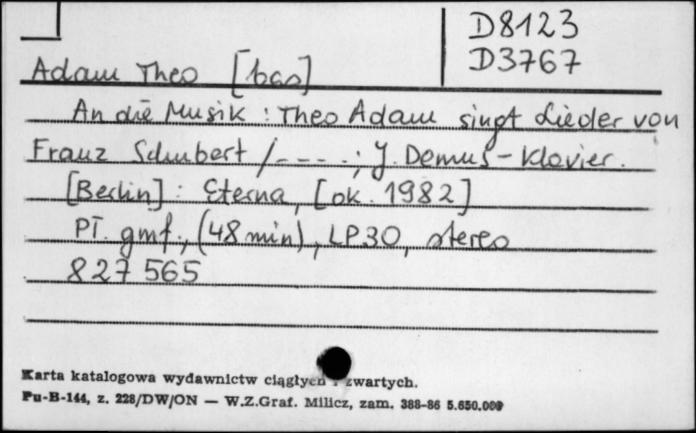 D8123
D3767
Adam Theo [bas]
An die Musik : Theo Adam singt Lieder von
Franz Schubert / - - - - . ; J. Demus - Klavier.
[Berlin] : Eterna, [ok. 1982]
Pł. gmf., (48 min), LP30, stereo
827 565
Karta katalogowa wydawnictw ciągłych i zwartych.
Pu-B-144, z. 228/DW/ON — W.Z.Graf. Milicz, zam. 388-86 5.650.000